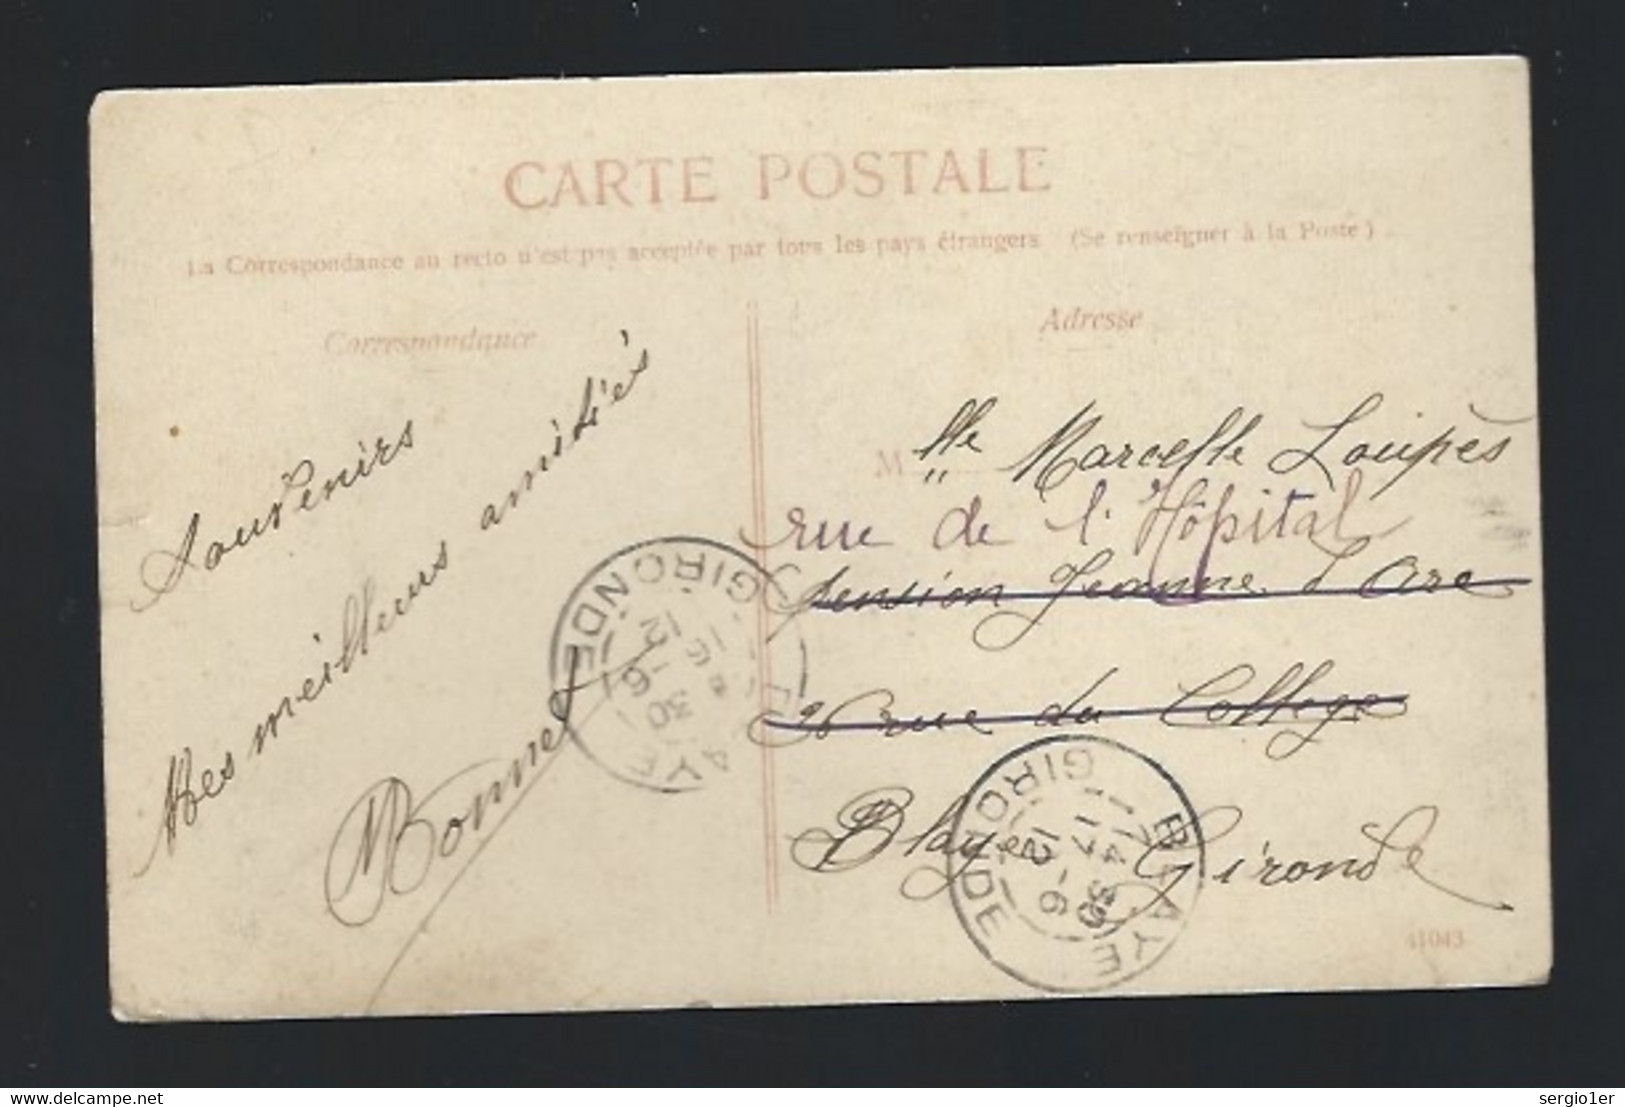 CARTE POSTALE
La Correspondance au recto n'est pas acceptée par tous les pays étrangers (Se renseigner à la Poste)
Correspondance
Souvenirs
Mes meilleurs amitiés
Bonnet
Adresse
M lle Marcelle Loupès
rue de l'Hôpital
pension Jeanne d'Arc
rue du College
Blaye Gironde
BLAYE GIRONDE
15 30
16 -6
12
BLAYE GIRONDE
14 30
17 -6
12
41043
delcampe.net
sergio1er